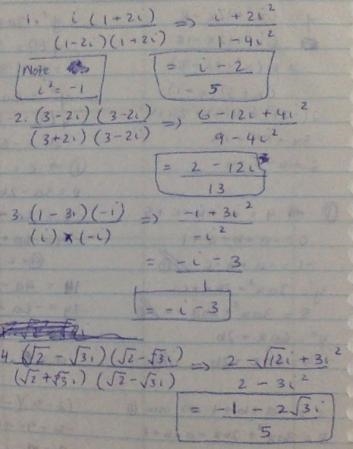 1. i (1+2i) / (1-2i)(1+2i) => i + 2i² / 1 - 4i²
Note
i² = -1
= i - 2 / 5
2. (3-2i)(3-2i) / (3+2i)(3-2i) => 6-12i+4i² / 9-4i²
= 2-12i / 13
3. (1-3i)(-i) / (i)×(-i) => -i+3i² / -i²
= -i-3 / 1
= -i-3
4. (√2 - √3i)(√2 - √3i) / (√2+√3i)(√2-√3i) => 2-√12i+3i² / 2-3i²
= -1-2√3i / 5